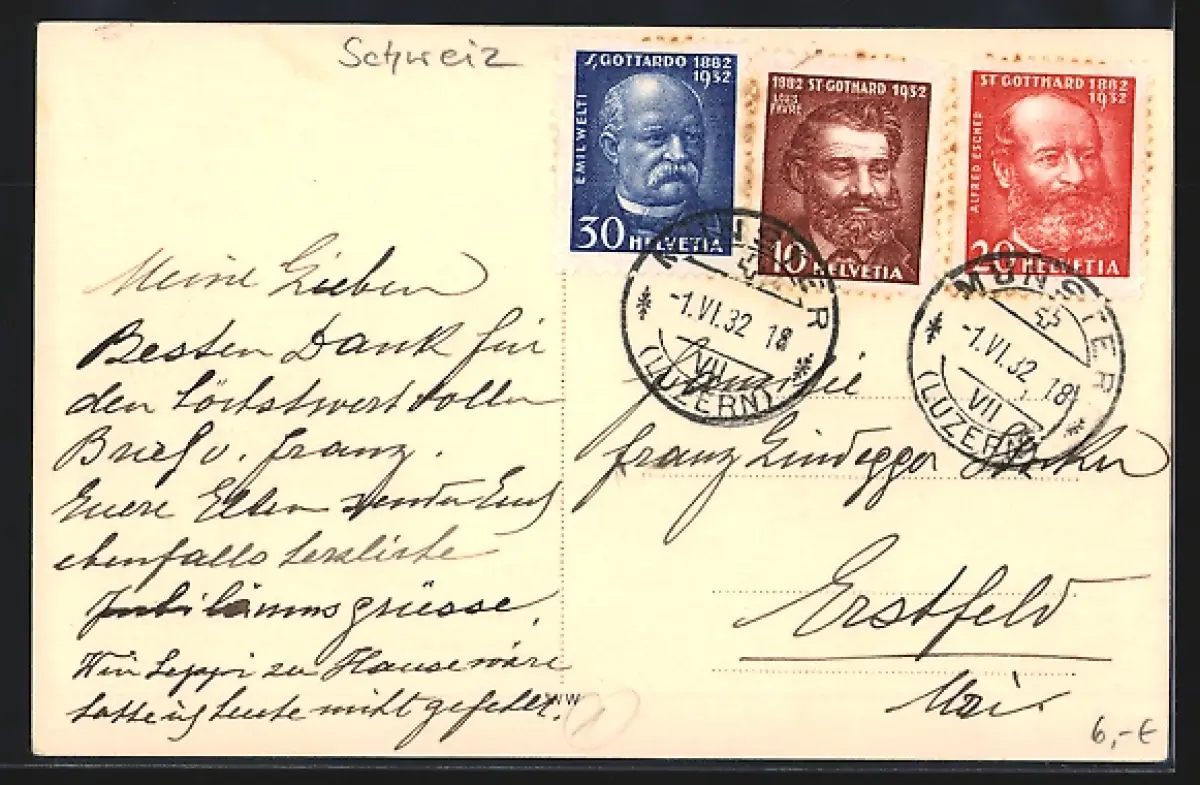 Schweiz
S. GOTTARDO 1882
1932
EMIL WELTI
30 HELVETIA
1882 ST GOTHARD 1932
LOUIS FAVRE
10 HELVETIA
ST GOTTHARD 1882
1932
ALFRED ESCHER
20 HELVETIA
MÜNSTER
-1.VI.32 18
VII
(LUZERN)
MÜNSTER
-1.VI.32 18
VII
(LUZERN)
Meine Lieben
Besten Dank für
den höchstwertvollen
Brief v. Franz.
Euere Eltern senden Euch
ebenfalls herzliche
Jubiläumsgrüsse.
Wenn Seppi zu Hause wäre
hätte ich heute nicht gefehlt.
Familie
Franz Lindegger
Erstfeld
Uri.
6,-€